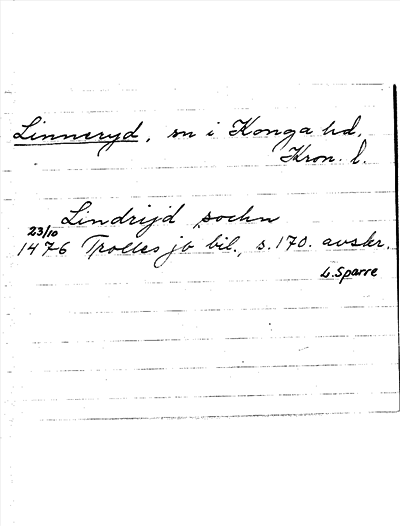 Linneryd, sn i Konga hd,
Kron. l.
Lindrijd sochn
23/10
1476 Trolles jb bil., s. 170. avskr.
L. Sparre